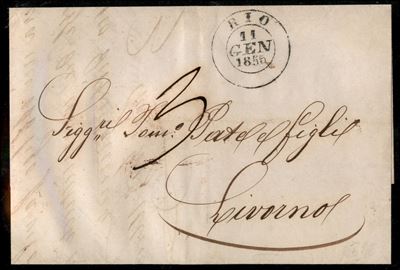 RIO
11
GEN
1856
3
Sigg.ri Dom.o Prato e figli
Livorno